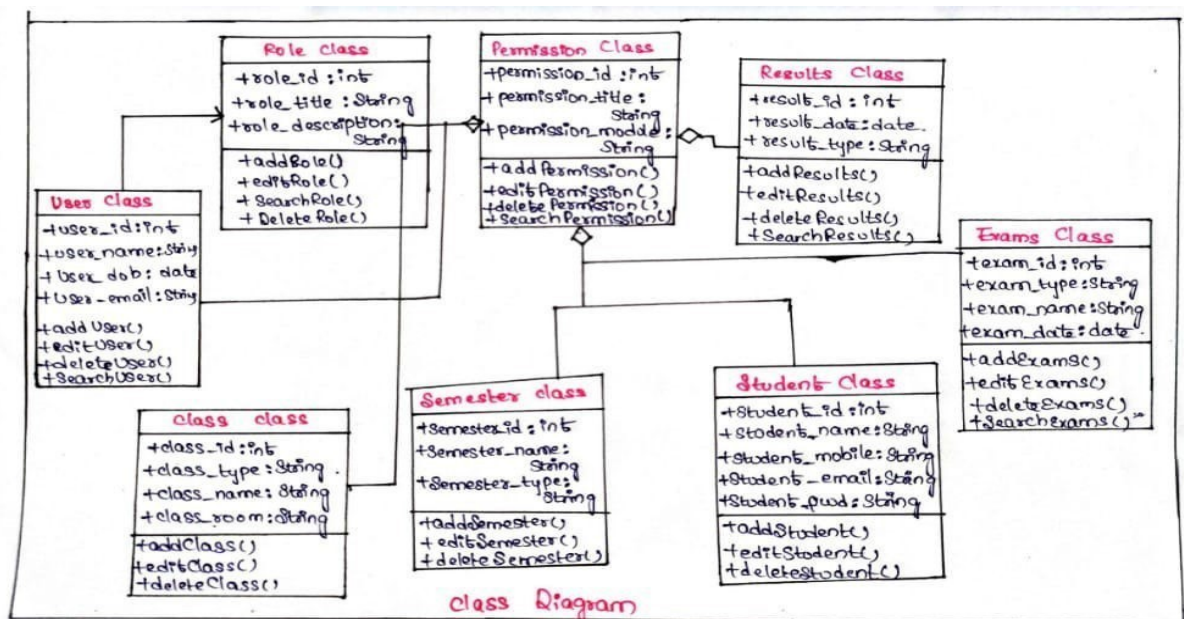 Role Class
+role_id : int
+role_title : String
+role_description:
String
+addRole()
+editRole()
+SearchRole()
+ DeleteRole()
Permission Class
+permission_id : int
+permission_title :
String
+permission_modde:
String
+addPermission()
+editPermission()
+deletePermission()
+SearchPermission()
Results Class
+result_id : int
+result_date:date.
+result_type:String
+addResults()
+editResults()
+deleteResults()
+SearchResults()
User Class
+user_id:int
+user_name:String
+User_dob: date
+User-email:String
+addUser()
+editUser()
+deleteUser()
+SearchUser()
Exams Class
+exam_id:int
+exam_type:String
+exam_name:String
+exam_date:date.
+addExams()
+editExams()
+deleteExams()
+SearchExams()
Class class
+class_id:int
+class_type:String.
+class_name:String
+class_room:String
+addClass()
+editClass()
+deleteClass()
Semester class
+Semester_id:int
+Semester_name:
String
+Semester_type:
String
+addSemester()
+editSemester()
+deleteSemester()
Student Class
+Student_id:int
+Student_name:String
+Student_mobile:String
+Student_email:String
+Student_pwd:String
+addStudent()
+editStudent()
+deleteStudent()
Class Diagram